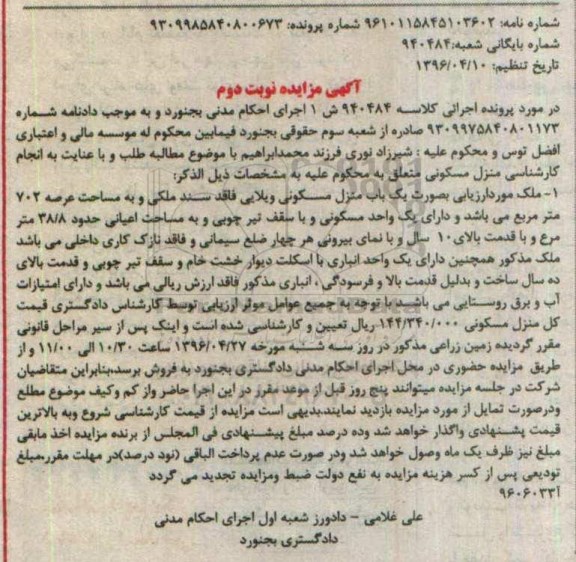 شماره نامه: ۹۶۱۰۱۱۵۸۴۵۱۰۳۶۰۲ شماره پرونده: ۹۳۰۹۹۸۵۸۴۰۸۰۰۶۷۳
شماره بایگانی شعبه:۹۴۰۴۸۴
تاریخ تنظیم: ۱۳۹۶/۰۴/۱۰
آگهی مزایده نوبت دوم
در مورد پرونده اجرائی کلاسه ۹۴۰۴۸۴ ش ۱ اجرای احکام مدنی بجنورد و به موجب دادنامه شماره
۹۳۰۹۹۷۵۸۴۰۸۰۱۱۷۳ صادره از شعبه سوم حقوقی بجنورد فیمابین محکوم له موسسه مالی و اعتباری
افضل توس و محکوم علیه : شیرزاد نوری فرزند محمدابراهیم با موضوع مطالبه طلب و با عنایت به انجام
کارشناسی منزل مسکونی متعلق به محکوم علیه به مشخصات ذیل الذکر:
۱- ملک موردارزیابی بصورت یک باب منزل مسکونی ویلایی فاقد سند ملکی و به مساحت عرصه ۷۰۲
متر مربع می باشد و دارای یک واحد مسکونی و با سقف تیر چوبی و به مساحت اعیانی حدود ۳۸/۸ متر
مرع و با قدمت بالای۱۰ سال و با نمای بیرونی هر چهار ضلع سیمانی و فاقد نازک کاری داخلی می باشد
ملک مذکور همچنین دارای یک واحد انباری با اسکلت دیوار خشت خام و سقف تیر چوبی و قدمت بالای
ده سال ساخت و بدلیل قدمت بالا و فرسودگی ، انباری مذکور فاقد ارزش ریالی می باشد و دارای امتیازات
آب و برق روستایی می باشد با توجه به جمیع عوامل موثر ارزیابی توسط کارشناس دادگستری قیمت
کل منزل مسکونی ۱۴۴/۳۴۰/۰۰۰ریال تعیین و کارشناسی شده است و اینک پس از سیر مراحل قانونی
مقرر گردیده زمین زراعی مذکور در روز سه شنبه مورخه ۱۳۹۶/۰۴/۲۷ ساعت ۱۰/۳۰ الی ۱۱/۰۰ و از
طریق مزایده حضوری در محل اجرای احکام مدنی دادگستری بجنورد به فروش برسد،بنابراین متقاضیان
شرکت در جلسه مزایده میتوانند پنج روز قبل از موعد مقرر در این اجرا حاضر واز کم وکیف موضوع مطلع
ودرصورت تمایل از مورد مزایده بازدید نمایند.بدیهی است مزایده از قیمت کارشناسی شروع وبه بالاترین
قیمت پشنهادی واگذار خواهد شد وده درصد مبلغ پیشنهادی فی المجلس از برنده مزایده اخذ مابقی
مبلغ نیز ظرف یک ماه وصول خواهد شد ودر صورت عدم پرداخت الباقی (نود درصد)در مهلت مقرر،مبلغ
تودیعی پس از کسر هزینه مزایده به نفع دولت ضبط ومزایده تجدید می گردد
۹۶۰۶۰۳۳آ
علی غلامی – دادورز شعبه اول اجرای احکام مدنی
دادگستری بجنورد